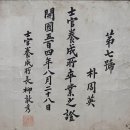 第七號
朴周英
士官養成所卒業之證
開國五百四年八月二十八日
士官養成所長